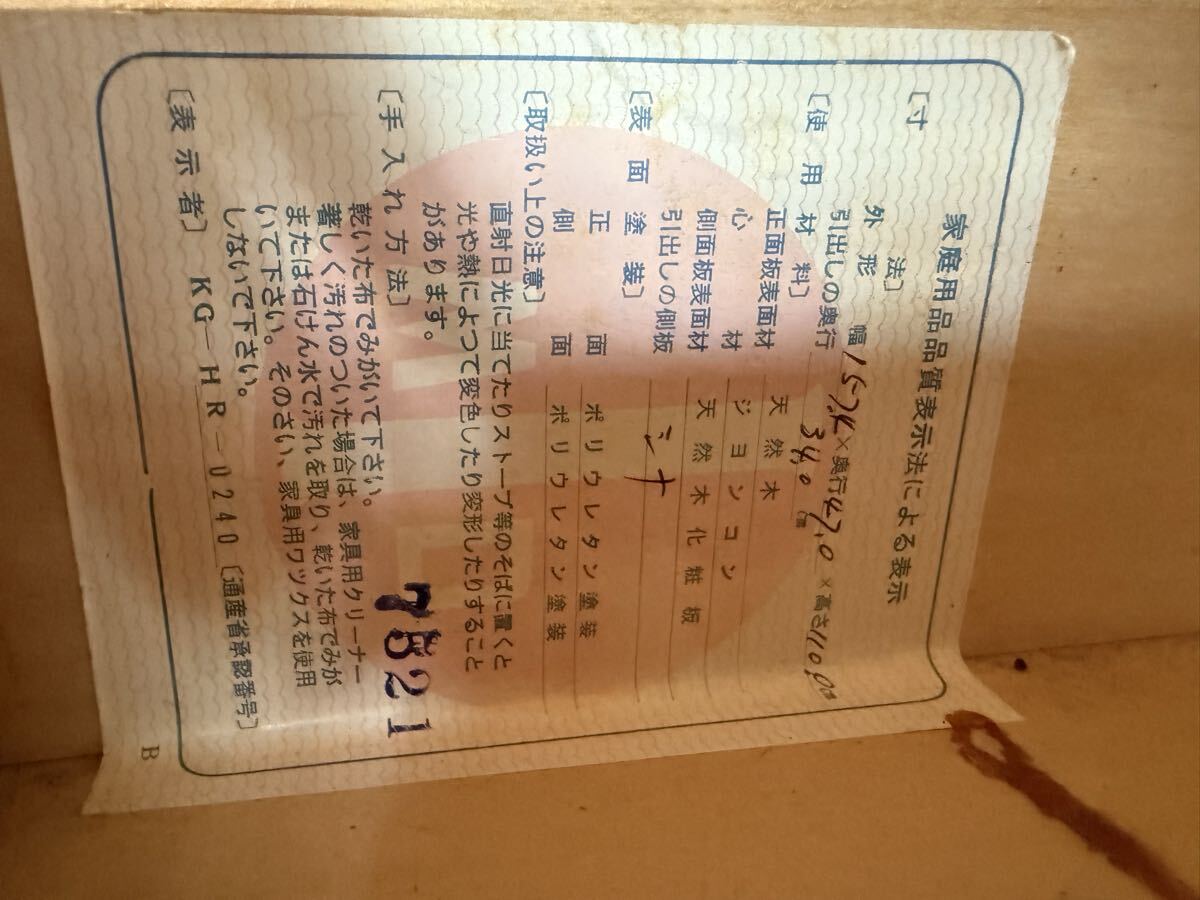 家庭用品品質表示法による表示
〔寸法〕
外形 幅157.4×奥行47.0×高さ110.0cm
引出しの奥行 34.0cm
〔使用材料〕
正面板表面材 天然木
心材 ジョンコン
側面板表面材 天然木化粧板
引出しの側板 シナ
〔表面塗装〕
正面 ポリウレタン塗装
側面 ポリウレタン塗装
〔取扱い上の注意〕
直射日光に当てたりストーブ等のそばに置くと
光や熱によつて変色したり変形したりすること
があります。
〔手入れ方法〕
乾いた布でみがいて下さい。
著しく汚れのついた場合は、家具用クリーナー
または石けん水で汚れを取り、乾いた布でみが
いて下さい。そのさい、家具用ワックスを使用
しないで下さい。
〔表示者〕 KG－HR－0240〔通産省承認番号〕
7521
B